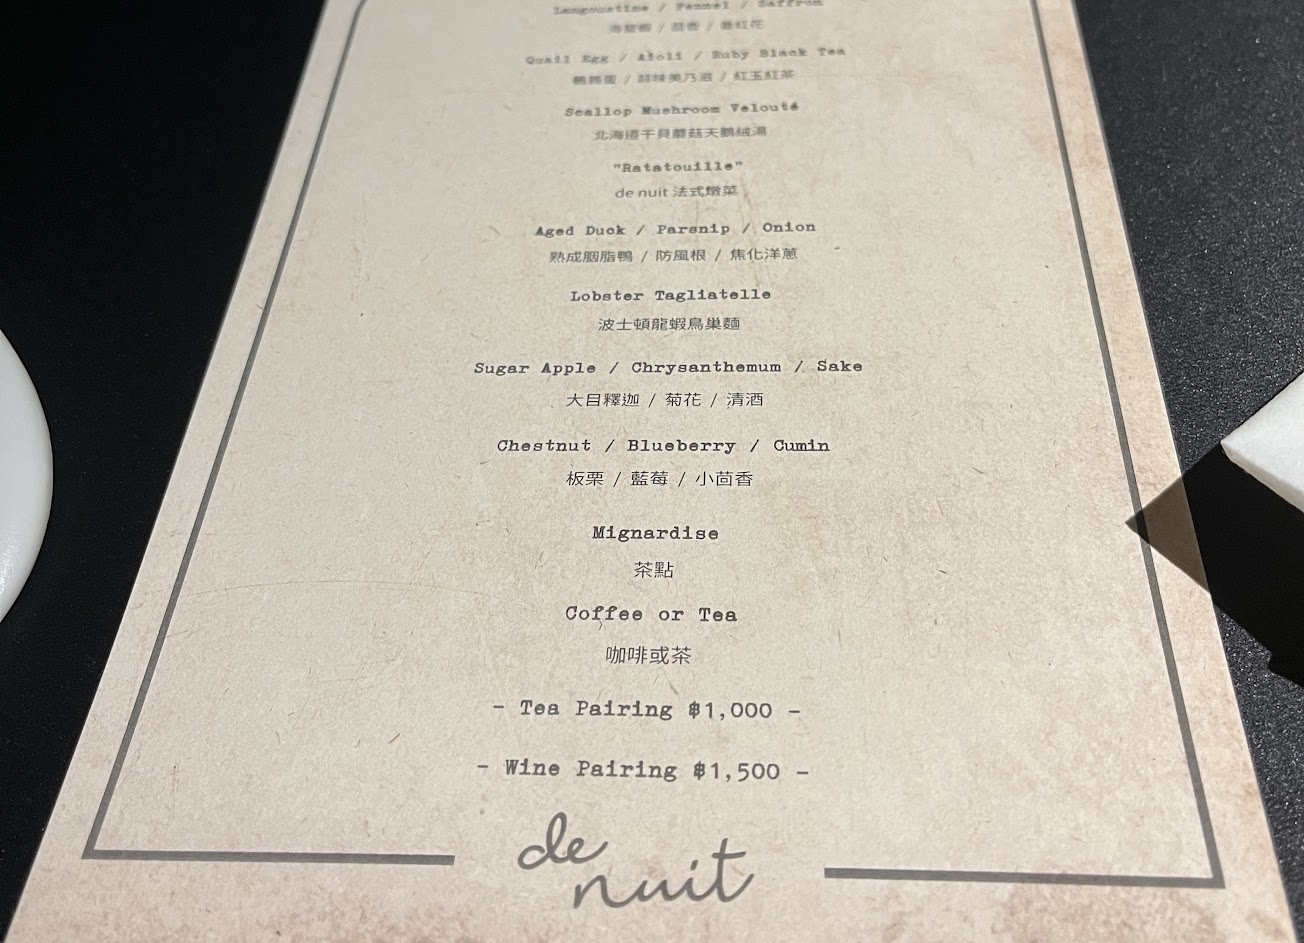 Langoustine / Fennel / Saffron
海螯蝦 / 茴香 / 番紅花
Quail Egg / Aioli / Ruby Black Tea
鵪鶉蛋 / 蒜味美乃滋 / 紅玉紅茶
Scallop Mushroom Velouté
北海道干貝蘑菇天鵝絨湯
"Ratatouille"
de nuit 法式燉菜
Aged Duck / Parsnip / Onion
熟成胭脂鴨 / 防風根 / 焦化洋蔥
Lobster Tagliatelle
波士頓龍蝦鳥巢麵
Sugar Apple / Chrysanthemum / Sake
大目釋迦 / 菊花 / 清酒
Chestnut / Blueberry / Cumin
板栗 / 藍莓 / 小茴香
Mignardise
茶點
Coffee or Tea
咖啡或茶
- Tea Pairing $1,000 -
- Wine Pairing $1,500 -
de
nuit